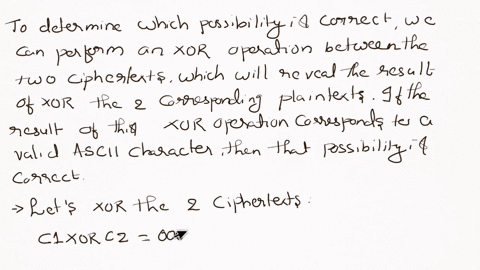 To determine which possibility is correct, we
can perform an XOR operation between the
two ciphertexts, which will reveal the result
of XOR the 2 corresponding plaintexts. If the
result of this XOR operation corresponds to a
valid ASCII character, then that possibility is
correct.
→ Let's XOR the 2 Ciphertexts:
C1 XOR C2 = 00